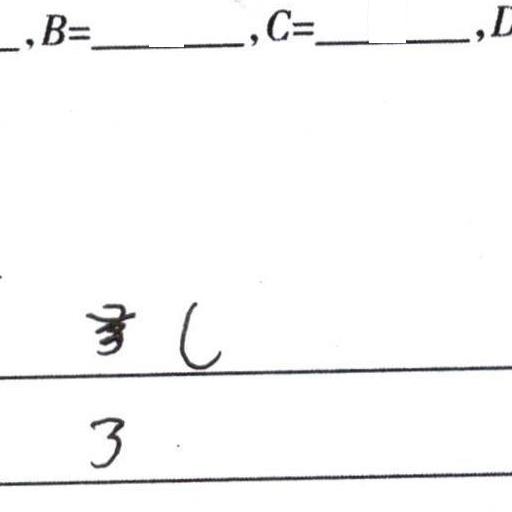 , B=________, C=________, D
3